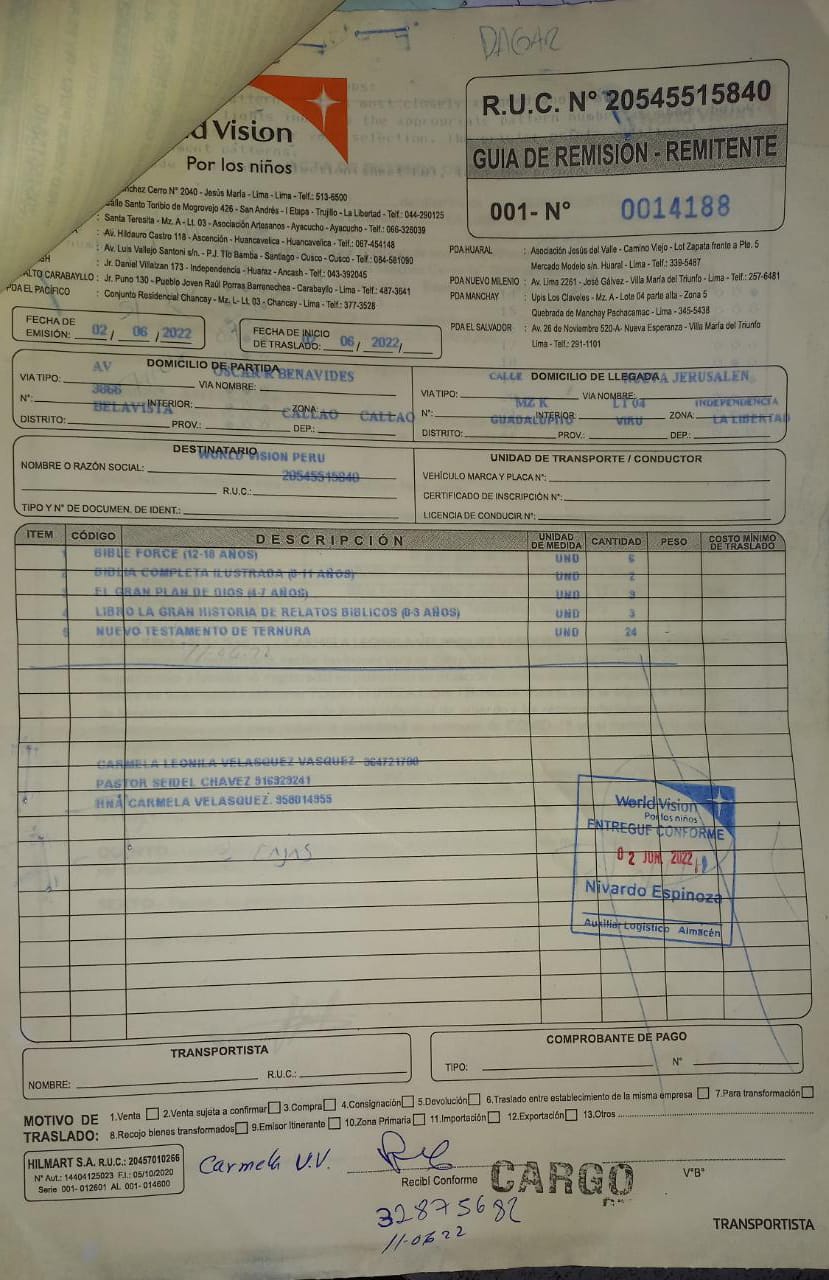 DAGAR
d Vision
Por los niños
R.U.C. N° 20545515840
GUIA DE REMISIÓN - REMITENTE
001- N° 0014188
nchez Cerro N° 2040 - Jesús María - Lima - Lima - Telf.: 513-6500
alle Santo Toribio de Mogrovejo 426 - San Andrés - I Etapa - Trujillo - La Libertad - Telf.: 044-290125
: Santa Teresita - Mz. A - Lt. 03 - Asociación Artesanos - Ayacucho - Ayacucho - Telf.: 066-325039
: Av. Hildauro Castro 118 - Ascención - Huancavelica - Huancavelica - Telf.: 067-454148
: Av. Luis Vallejo Santoni s/n. - P.J. Tío Bamba - Santiago - Cusco - Cusco - Telf.: 084-581090
: Jr. Daniel Villaizan 173 - Independencia - Huaraz - Ancash - Telf.: 043-392045
ALTO CARABAYLLO : Jr. Puno 130 - Pueblo Joven Raúl Porras Barrenechea - Carabayllo - Lima - Telf.: 487-3641
PDA EL PACÍFICO : Conjunto Residencial Chancay - Mz. L- Lt. 03 - Chancay - Lima - Telf.: 377-3528
PDA HUARAL : Asociación Jesús del Valle - Camino Viejo - Lot Zapata frente a Pte. 5
Mercado Modelo s/n. Huaral - Lima - Telf.: 339-5487
PDA NUEVO MILENIO : Av. Lima 2261 - José Gálvez - Villa María del Triunfo - Lima - Telf.: 257-6481
PDA MANCHAY : Upis Los Claveles - Mz. A - Lote 04 parte alta - Zona 5
Quebrada de Manchay Pachacamac - Lima - 345-5438
PDA EL SALVADOR : Av. 26 de Noviembre 520-A- Nueva Esperanza - Villa María del Triunfo
Lima - Telf.: 291-1101
FECHA DE EMISIÓN: 02 / 06 / 2022
FECHA DE INICIO DE TRASLADO: 02 / 06 / 2022 /
DOMICILIO DE PARTIDA
VIA TIPO: AV VIA NOMBRE: OSCAR R BENAVIDES
N°: 3866 INTERIOR: ZONA:
DISTRITO: BELAVISTA PROV.: CALLAO DEP.: CALLAO
DOMICILIO DE LLEGADA
VIA TIPO: CALLE VIA NOMBRE: JERUSALEN
N°: MZ K INTERIOR: LT 04 ZONA: INDEPENDENCIA
DISTRITO: GUADALUPITO PROV.: VIRU DEP.: LA LIBERTAD
DESTINATARIO
NOMBRE O RAZÓN SOCIAL: WORLD VISION PERU
R.U.C.: 20545515840
TIPO Y N° DE DOCUMEN. DE IDENT.:
UNIDAD DE TRANSPORTE / CONDUCTOR
VEHÍCULO MARCA Y PLACA N°:
CERTIFICADO DE INSCRIPCIÓN N°:
LICENCIA DE CONDUCIR N°:
ITEM CÓDIGO DESCRIPCIÓN UNIDAD DE MEDIDA CANTIDAD PESO COSTO MÍNIMO DE TRASLADO
1 BIBLE FORCE (12-18 AÑOS) UND 6
2 BIBLIA COMPLETA ILUSTRADA (8-11 AÑOS) UND 2
3 EL GRAN PLAN DE DIOS (4-7 AÑOS) UND 3
4 LIBRO LA GRAN HISTORIA DE RELATOS BIBLICOS (0-3 AÑOS) UND 3
5 NUEVO TESTAMENTO DE TERNURA UND 24 -
11-06-22
CARMELA LEONILA VELASQUEZ VASQUEZ 964721790
PASTOR SEIDEL CHAVEZ 916329241
HNA CARMELA VELASQUEZ. 958014955
FAJAS
World Vision
Por los niños
ENTREGUE CONFORME
02 JUN. 2022
Nivardo Espinoza
Auxiliar Logístico Almacén
TRANSPORTISTA
NOMBRE: R.U.C.:
COMPROBANTE DE PAGO
TIPO: N°
MOTIVO DE TRASLADO:
1.Venta 2.Venta sujeta a confirmar 3.Compra 4.Consignación 5.Devolución 6.Traslado entre establecimiento de la misma empresa 7.Para transformación
8.Recojo bienes transformados 9.Emisor Itinerante 10.Zona Primaria 11.Importación 12.Exportación 13.Otros
HILMART S.A. R.U.C.: 20457010266
N° Aut.: 14404125023 F.I.: 05/10/2020
Serie 001- 012601 AL 001- 014600
Carmela V.V.
Recibí Conforme
CARGO
V°B°
32875682
11-06-22
TRANSPORTISTA